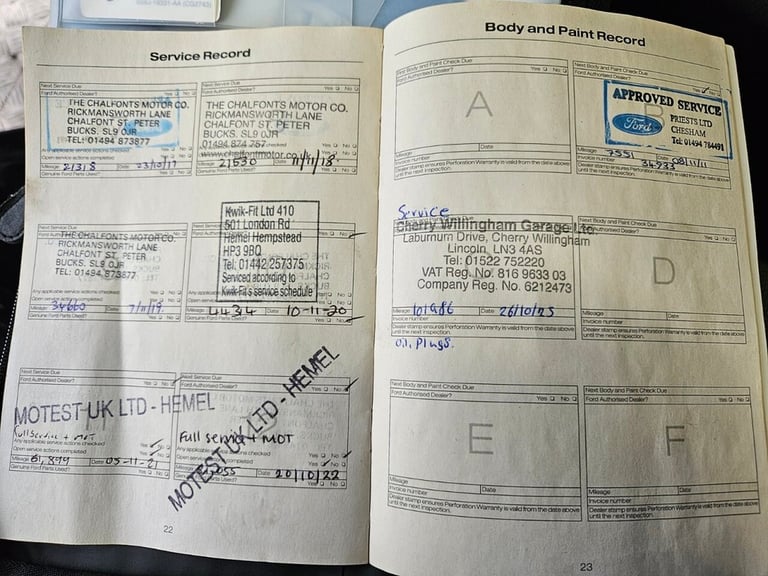 Service Record
Next Service Due
Ford Authorised Dealer? Yes No
THE CHALFONTS MOTOR CO.
RICKMANSWORTH LANE
CHALFONT ST. PETER
BUCKS. SL9 0JR
TEL: 01494 873877
Open service actions completed
Mileage 21315 Date 03/10/17
Genuine Ford Parts Used? Yes No
Next Service Due
Ford Authorised Dealer? Yes No
THE CHALFONTS MOTOR CO.
RICKMANSWORTH LANE
CHALFONT ST. PETER
BUCKS. SL9 0JR
Mileage 21530 11/11/18
Genuine Ford Parts Used? Yes No
THE CHALFONTS MOTOR CO.
RICKMANSWORTH LANE
CHALFONT ST. PETER
BUCKS. SL9 0JR
TEL: 01494 873877
Open service actions completed
Mileage 34660 Date 7/11/19
Genuine Ford Parts Used? Yes No
Kwik-Fit Ltd 410
501 London Rd
Hemel Hempstead
HP3 9BQ
Tel: 01442 257375
Serviced according to
Kwik-Fit's service schedule
Mileage 4434 Date 10-11-20
Genuine Ford Parts Used? Yes No
Next Service Due
Ford Authorised Dealer? Yes No
MOTEST UK LTD - HEMEL
Full service + MOT
Any applicable service actions checked Yes No
Open service actions completed Yes No
Mileage 61,899 Date 05-11-21
Genuine Ford Parts Used? Yes No
Next Service Due
Ford Authorised Dealer? Yes No
MOTEST UK LTD - HEMEL
Full service + MOT
Date 20/10/22
22
Body and Paint Record
Next Body and Paint Check Due
Ford Authorised Dealer? Yes No
A
Mileage Date
Invoice number
Dealer stamp ensures Perforation Warranty is valid from the date above
until the next inspection.
Next Body and Paint Check Due
Ford Authorised Dealer? Yes No
APPROVED SERVICE
Ford
PRIESTS LTD
CHESHAM
Tel: 01494 784491
Mileage 7551 Date 08/11/11
Invoice number 34933
Dealer stamp ensures Perforation Warranty is valid from the date above
until the next inspection.
Service
Cherry Willingham Garage Ltd.
Laburnum Drive, Cherry Willingham
Lincoln, LN3 4AS
Tel: 01522 752220
VAT Reg. No. 816 9633 03
Company Reg. No. 6212473
Mileage 101986 Date 26/10/23
Invoice number
Dealer stamp ensures Perforation Warranty is valid from the date above
until the next inspection.
oil plugs.
Next Body and Paint Check Due
Yes No
D
Mileage Date
Invoice number
Dealer stamp ensures Perforation Warranty is valid from the date above
until the next inspection.
Next Body and Paint Check Due
Ford Authorised Dealer? Yes No
E
Mileage
Invoice number Date
Dealer stamp ensures Perforation Warranty is valid from the date above
until the next inspection.
Next Body and Paint Check Due
Ford Authorised Dealer? Yes No
F
Mileage Date
Invoice number
Dealer stamp ensures Perforation Warranty is valid from the date above
until the next inspection.
23